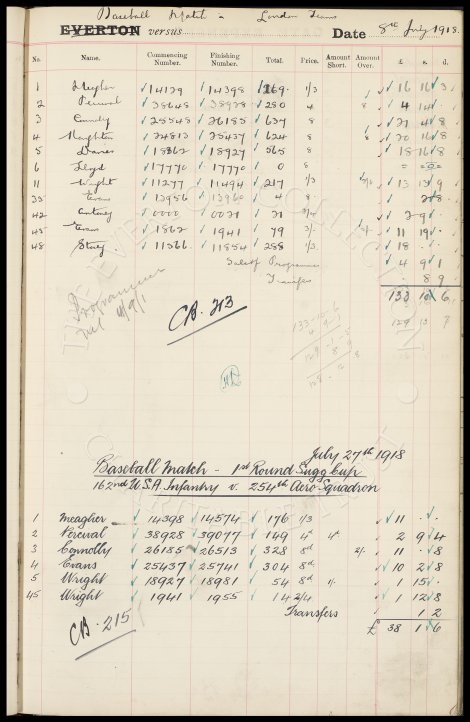 Baseball Match - London Teams
EVERTON versus Date 8th July 1918.
No. Name. Commencing Number. Finishing Number. Total. Price. Amount Short. Amount Over. £ s. d.
1 Meagher 14129 14398 269 1/3 16 16 3
2 Percival 38648 38928 280 4 8 4 14
3 Connolly 25548 26185 637 8 21 4 8
4 Naughton 24813 25437 624 8 8 20 16 8
5 Davies 18362 18927 565 8 18 16 8
6 Lloyd 17770 17770 0 8 - 0 -
11 Wright 11277 11494 217 1/3 13 13 9
35 Evans 13956 13960 4 8 2 8
42 0000 0031 31 2 9
45 Evans 1862 1941 79 3/- 11 19
48 Story 11566 11854 288 1/3 18
Sale of Programmes 4 9 1
Transfers 8 9
133 10 6
Programmes
Net 4/9/1
CB. 213
133-10-6
4-9-1
129-1-5
8-9
128-
129 7
July 27th 1918
Baseball Match - 1st Round Sugg Cup
162nd U.S.A Infantry v. 254th Aero Squadron
1 Meagher 14398 14574 176 1/3 11 -
2 Percival 38928 39077 149 4d 4d 2 9 4
3 Connolly 26185 26513 328 8d 2/- 11 - 8
4 Evans 25437 25741 304 8d 10 2 8
5 Wright 18927 18981 54 8d 1/- 1 15 -
45 Wright 1941 1955 14 2/4 1 12 8
Transfers 1 2
£ 38 1 6
CB. 215
THE EVERTON COLLECTION